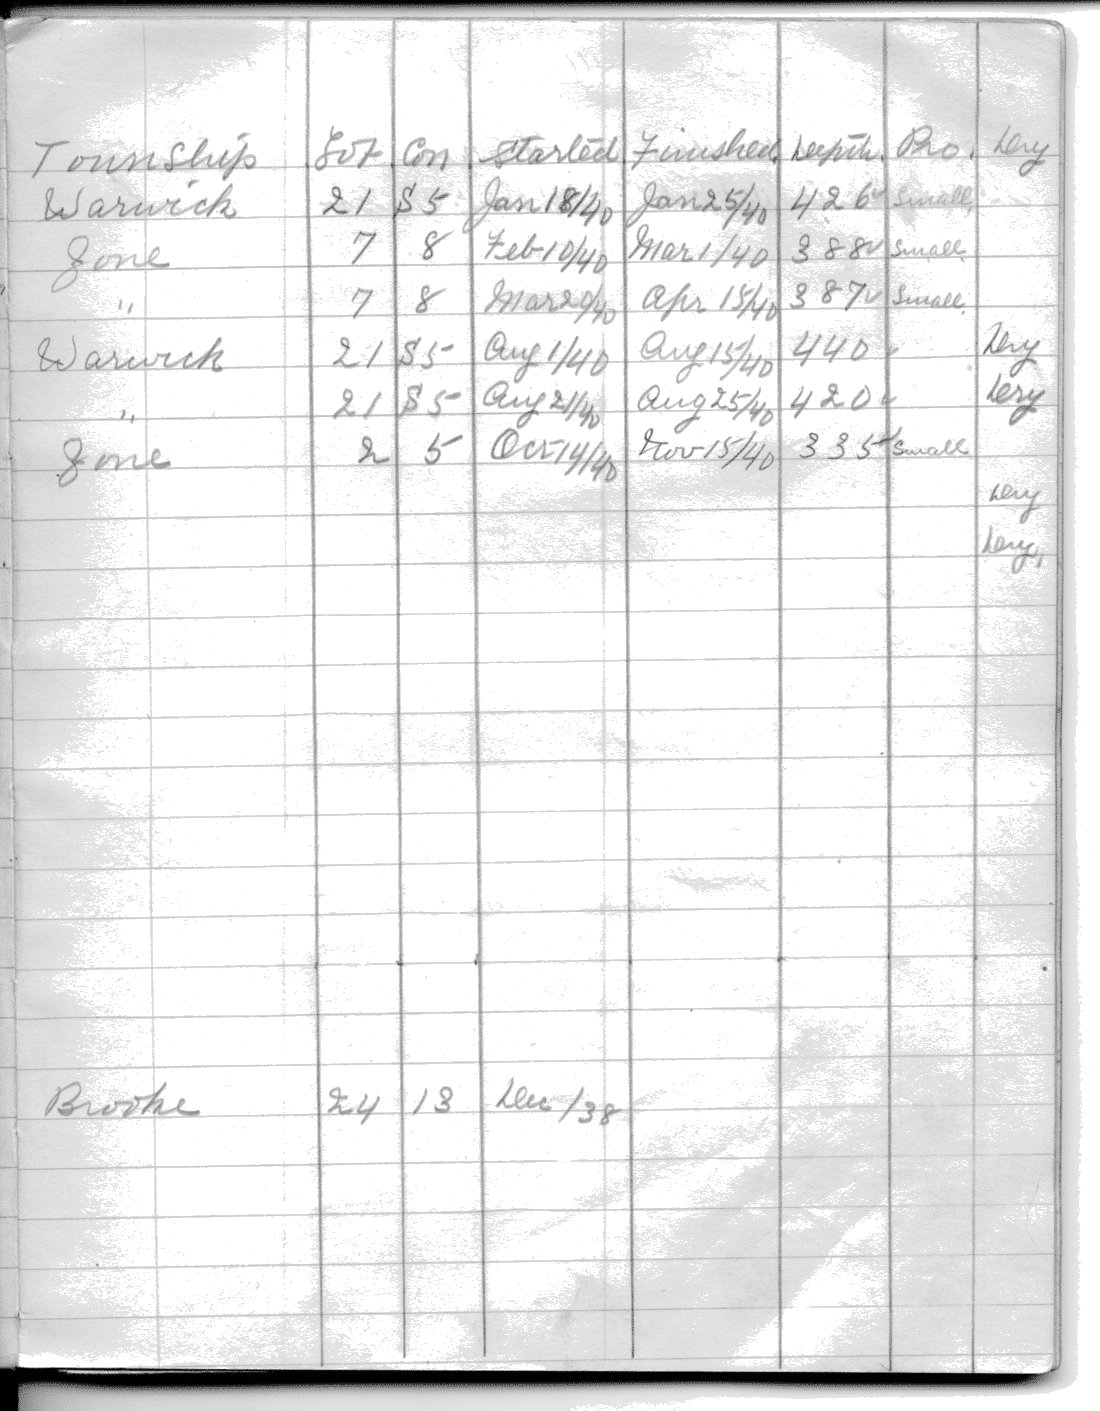 Township Lot Con Started Finished Depth. Pro. Dry
Warwick 21 S5 Jan 18/40 Jan 25/40 426 Small
Zone 7 8 Feb 10/40 Mar 1/40 388 Small
" 7 8 Mar 20/40 Apr 15/40 387 Small
Warwick 21 S5 Aug 1/40 Aug 15/40 440 Dry
" 21 S5 Aug 21/40 Aug 25/40 420 Dry
Zone 2 5 Oct 14/40 Nov 15/40 335 Small
Dry
Dry,
Brooke 24 13 Dec /38